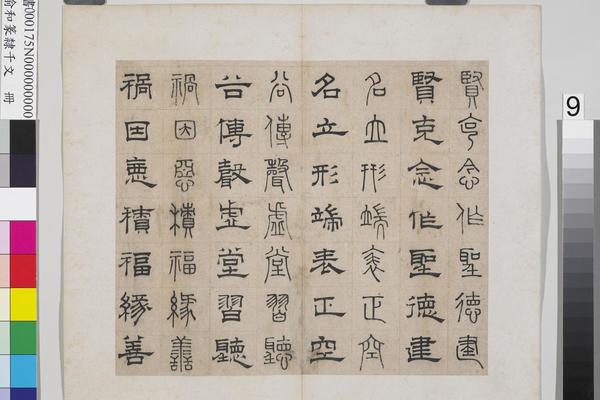 賢克念作聖德建
賢克念作聖德建
名立形端表正空
名立形端表正空
谷傳聲虛堂習聽
谷傳聲虛堂習聽
禍因惡積福緣善
禍因惡積福緣善
書000175N000000000
俞和篆隸千文 冊
9